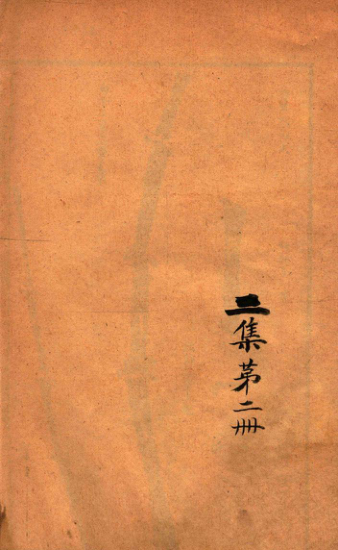 二集第二冊